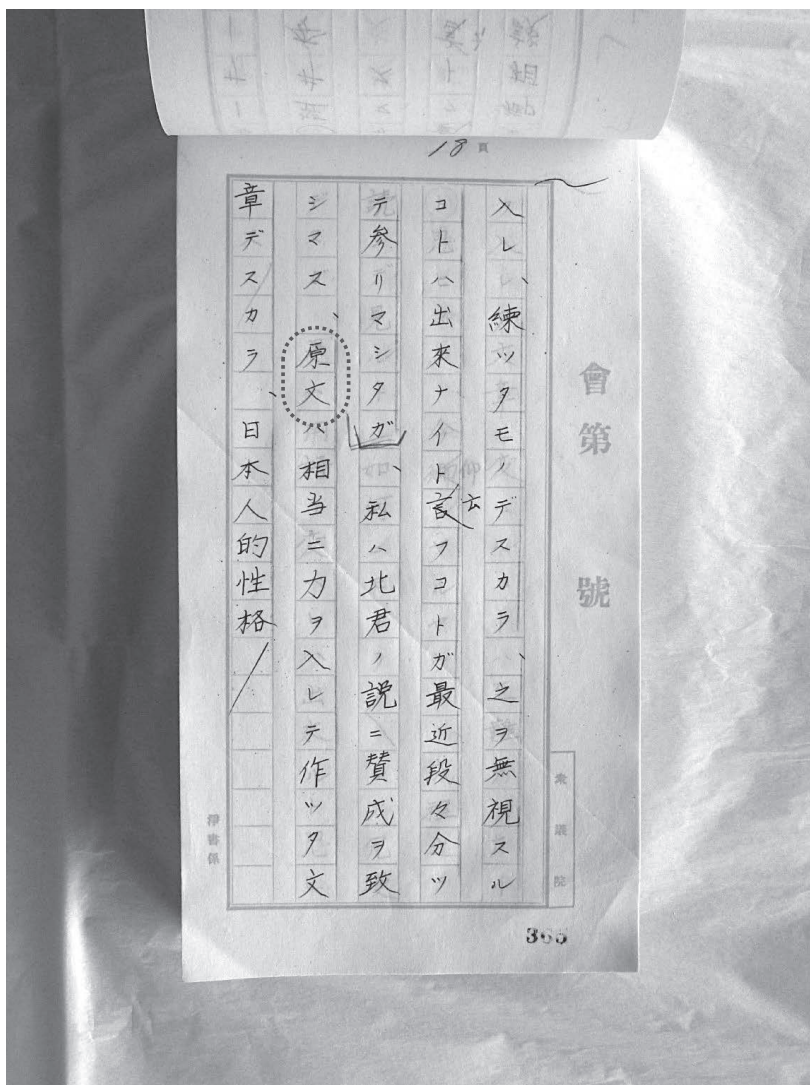 18頁
會第　號
衆議院
入レ、練ツタモノデスカラ、之ヲ無視スル
コトハ出來ナイト言フコトガ最近段々分ツ
云
テ參リマシタガ、私ハ北君ノ説ニ賛成ヲ致
シマス、原文ハ相当ニ力ヲ入レテ作ツタ文
章デスカラ、日本人的性格
淨書係
365